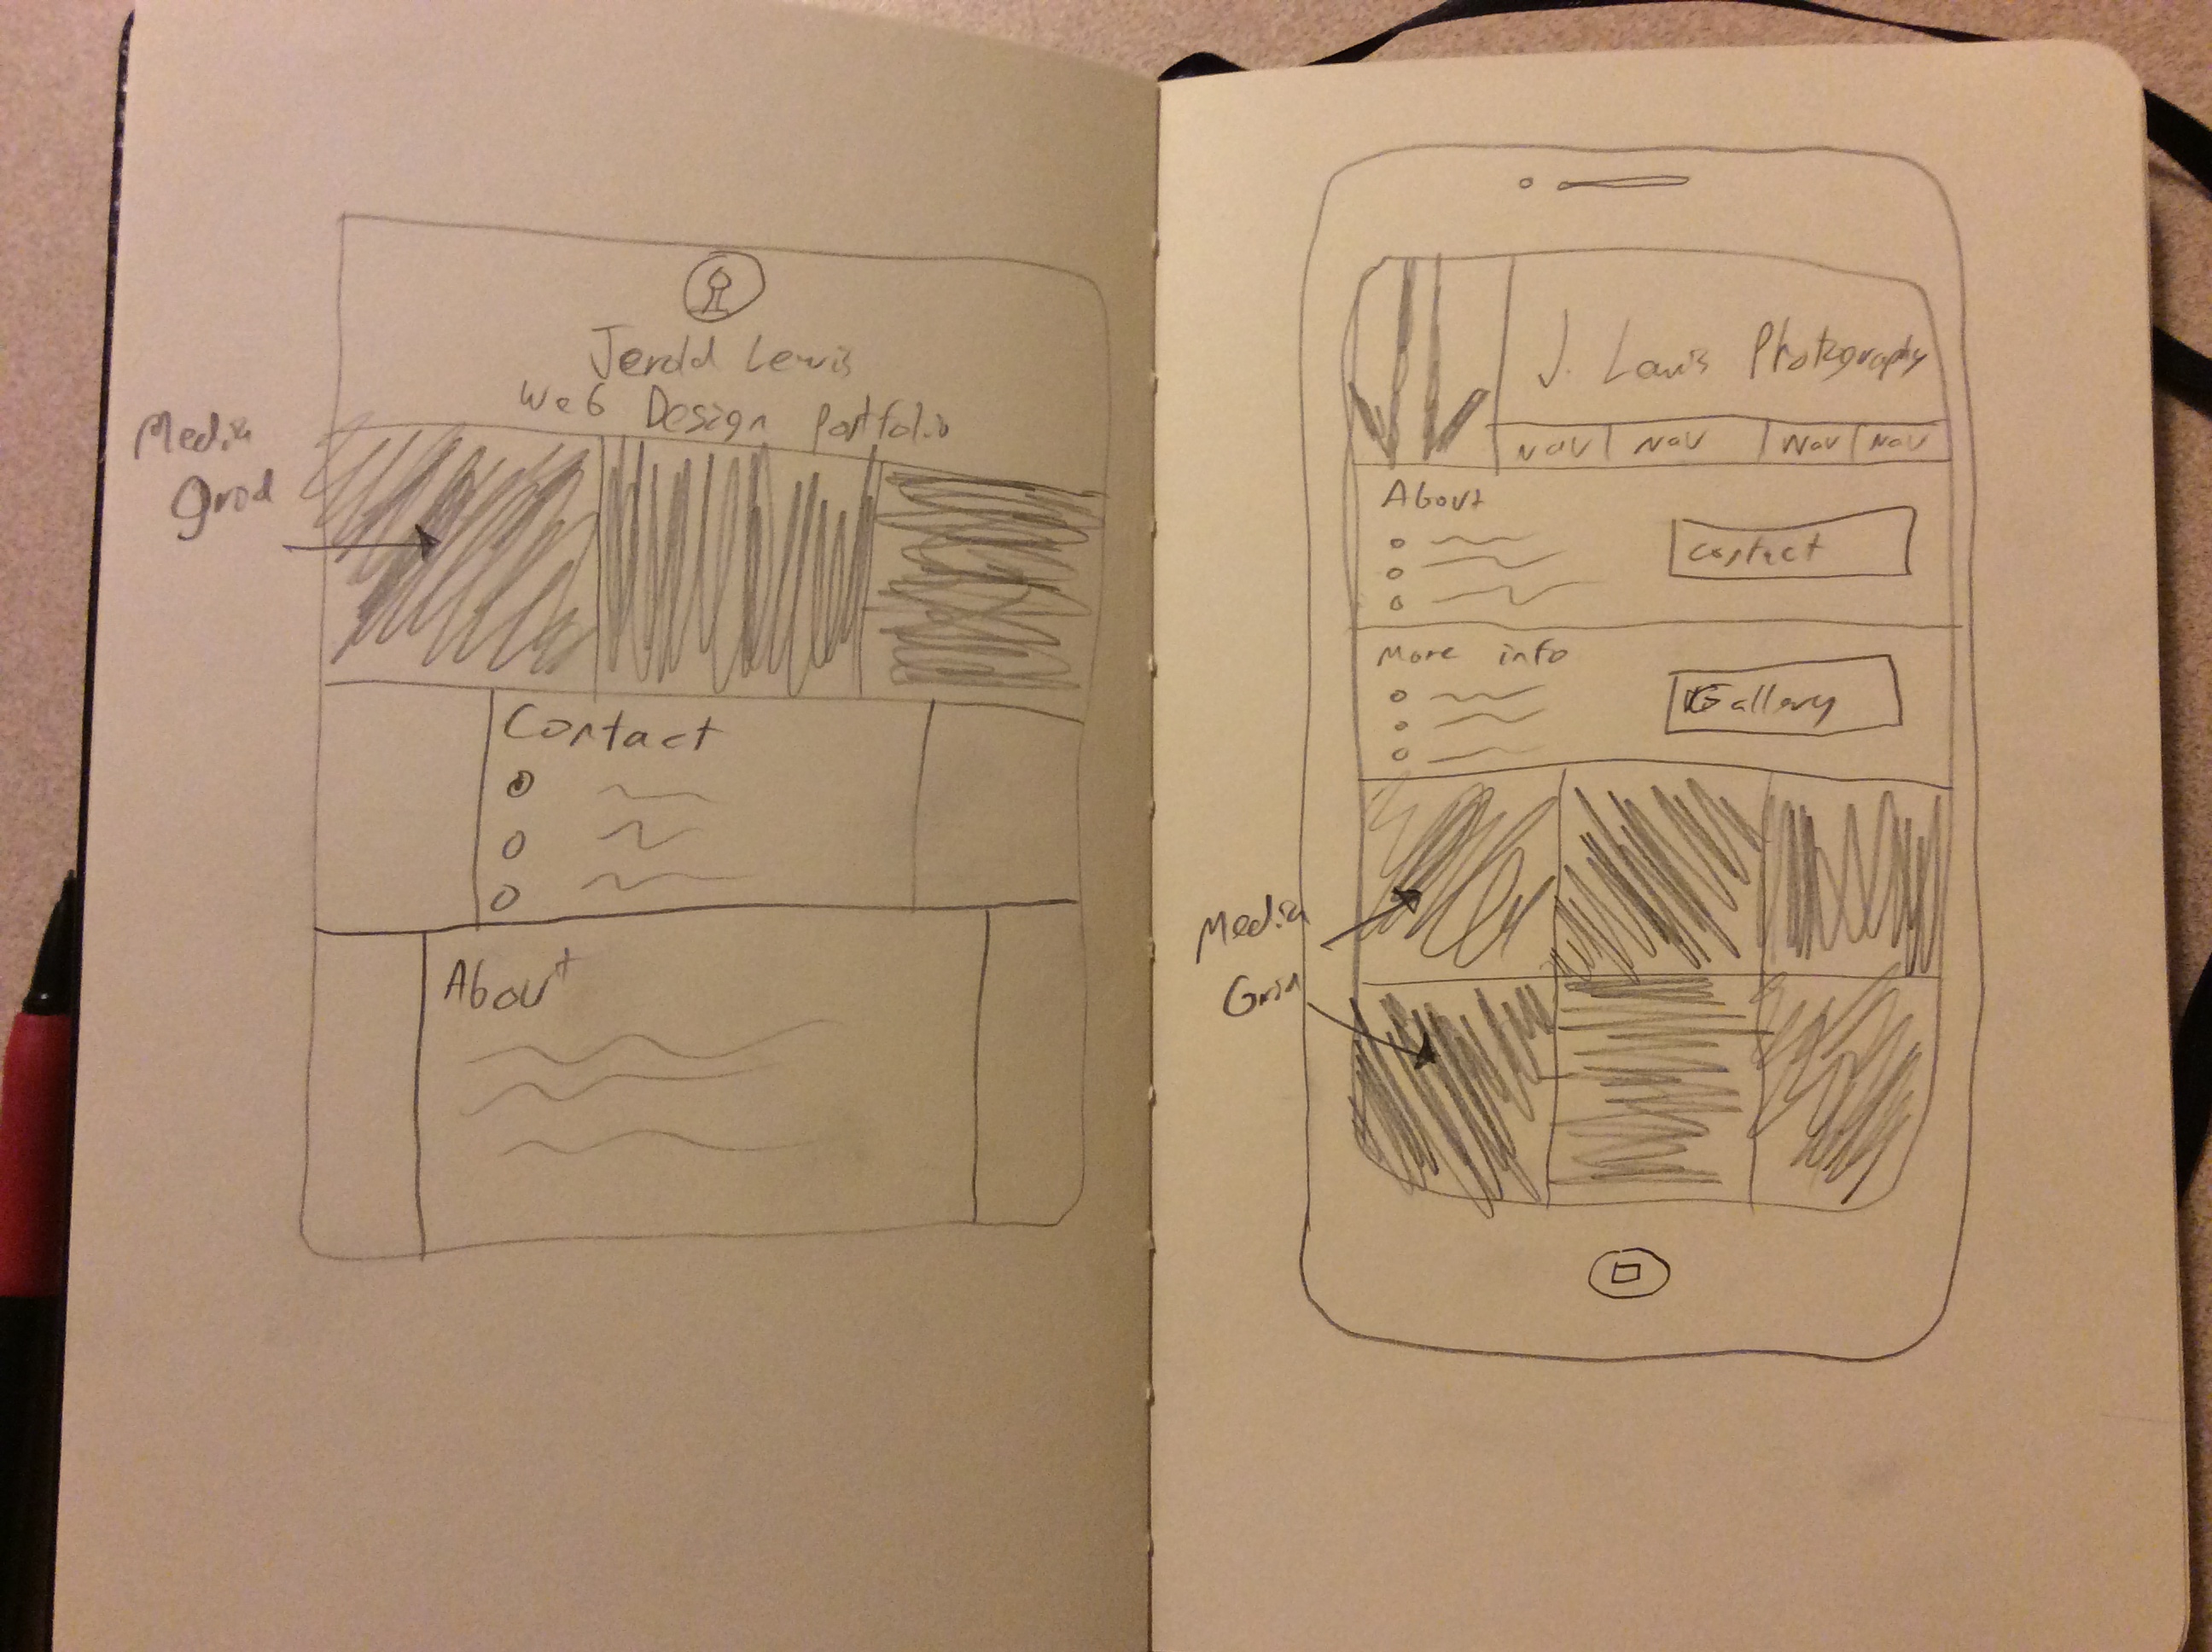 Jerold Lewis
Web Design Portfolio
Media
grid
Contact
About
J. Lewis Photography
NAV NAV NAV NAV
About
contact
More info
Gallery
Media
Grid